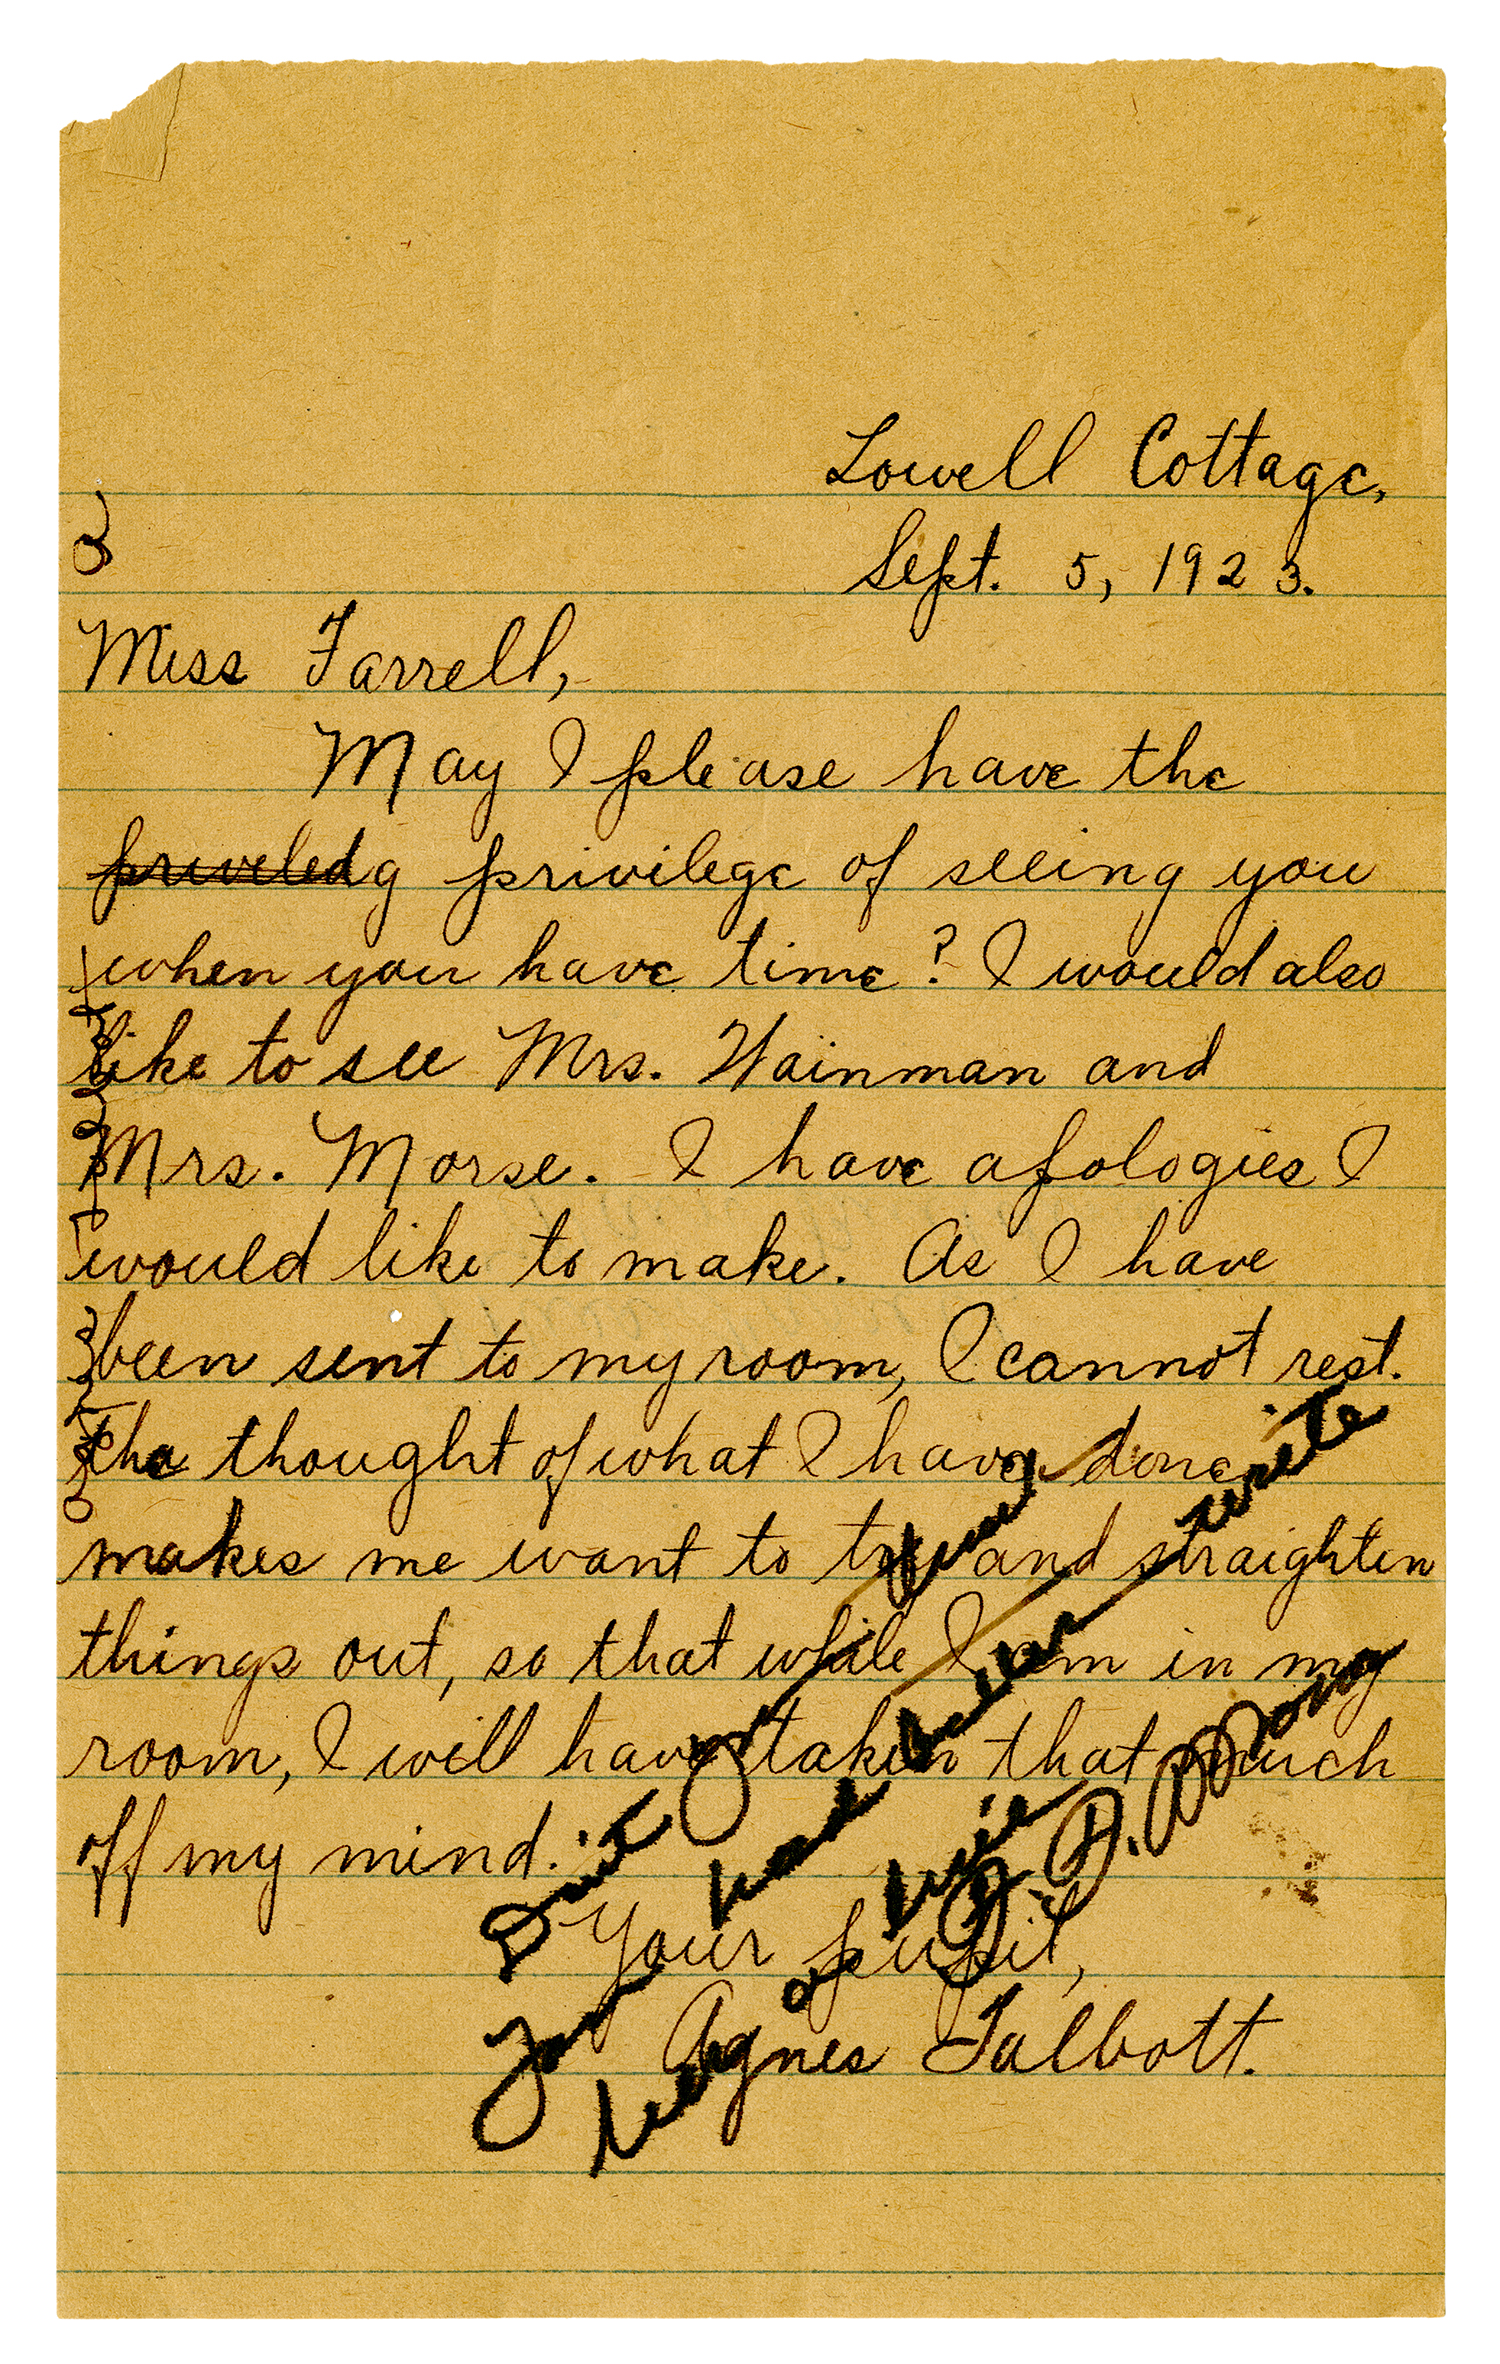 Lowell Cottage,
Sept. 5, 1923.
Miss Farrell,
May I please have the
priveledg privilege of seeing you
when you have time? I would also
like to see Mrs. Wainman and
Mrs. Morse. I have apologies I
would like to make. As I have
been sent to my room, I cannot rest.
the thought of what I have done
makes me want to try and straighten
things out, so that while I am in my
room, I will have taken that much
off my mind.
Your pupil,
Agnes Talbott.
had better write